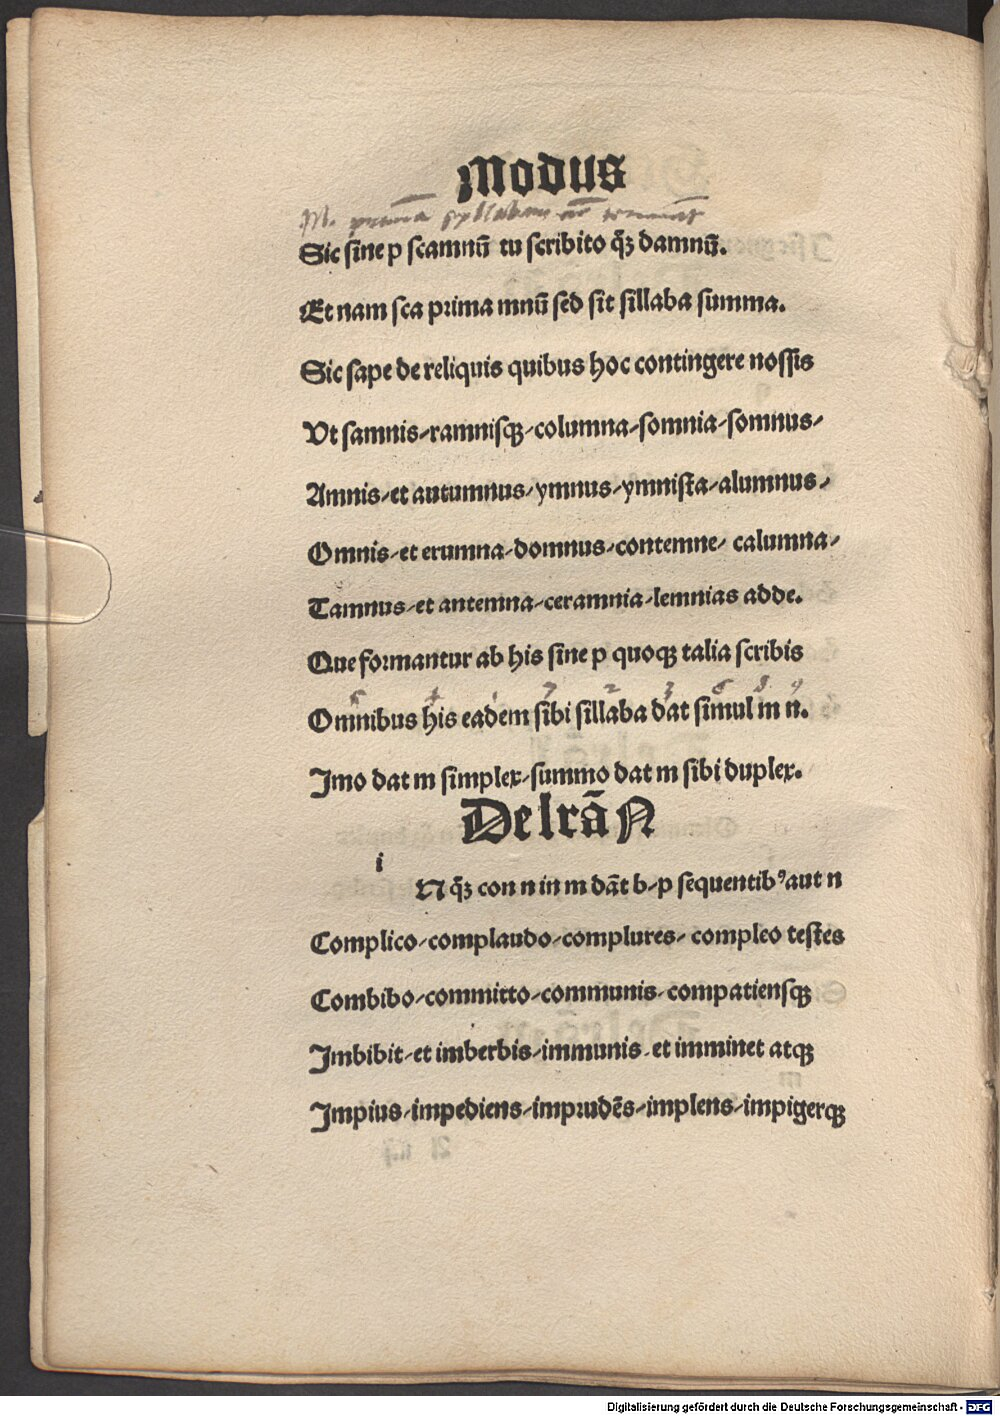 Modus
M. syllabam
Sic sine p scamnũ tu scribito q̃ꝫ damnũ.
Et nam sca prima mnũ sed sit sillaba summa.
Sic sape de reliquis quibus hoc contingere nossis
Vt samnis⸗ramnisqꝫ⸗columna⸗somnia⸗somnus⸗
Amnis⸗et autumnus⸗ymnus⸗ymnista⸗alumnus⸗
Omnis⸗et erumna⸗domnus⸗contemne⸗ calumna⸗
Tamnus⸗et antemna⸗ceramnia⸗lemnias adde.
Que formantur ab his sine p quoqꝫ talia scribis
Omnibus his eadem sibi sillaba dat simul m n.
Imo dat m simplex⸗summo dat m sibi duplex.
De lrã N
i
N q̃ꝫ con n in m dãt b⸗p sequentibꝰ aut n
Complico⸗complaudo⸗complures⸗ compleo testes
Combibo⸗committo⸗communis⸗compatiensqꝫ
Imbibit⸗et imberbis⸗immunis⸗et imminet atqꝫ
Impius⸗impediens⸗imprudẽs⸗implens⸗impigerqꝫ
Digitalisierung gefördert durch die Deutsche Forschungsgemeinschaft - DFG